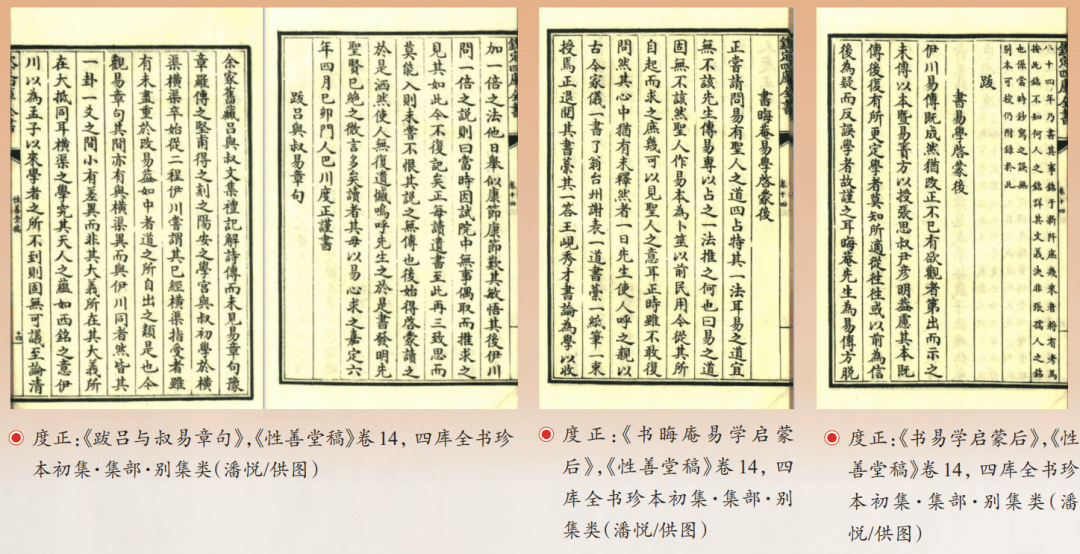 欽定四庫全書
卷十四
八十四年乃書其事銘于新阡庶幾來者将有考焉
按此銘不知何人之銘詳其文義决非張孺人之銘
也係當時鈔寫之誤無
别本可校仍附錄於此
跋
書易學啓蒙後
伊川易傳既成然猶改正不已有欲觀者第出而示之
未傳以本暨易簀方以授張思叔尹彦明葢慮其本既
傳後復有所更定學者莫知所適從往往或以前為信
後為疑而反誤學者故謹之耳晦菴先生為易傳方脱
欽定四庫全書
卷十四
書晦庵易學啓蒙後
正嘗請問易有聖人之道四占特其一法耳易之道宜
無不該先生傳易專以占之一法推之何也曰易之道
固無不該然聖人作易本為卜筮以前民用今從其所
自起而求之庶幾可以見聖人之意耳正時雖不敢復
問然其心中猶有未釋然者一日先生使人呼之親以
古今家儀一書了翁台州謝表一道書藁一紙筆一束
授焉正退閱其書藁其一答王峴秀才書論為學以收
欽定四庫全書
卷十四
加一倍之法他日舉似康節康節歎其敏悟其後伊川
問一倍之說則曰當時因試院中無事偶取而推求之
見其如此今不復記矣正毎讀遺書至此再三致思而
莫能入則未嘗不恨其說之無傳也後始得啓蒙讀之
於是洒然使人無復遺憾嗚呼先生之於是書發明先
聖賢已絶之微言多矣讀者其毋以易心求之嘉定六
年四月巳卯門人巴川度正謹書
跋吕與叔易章句
余家舊藏吕與叔文集禮記解詩傳而未見易章句豫
章羅傳之堅甫得之刻之陽安之學宫與叔初學於横
渠横渠卒始從二程伊川嘗謂其已經横渠指受者雖
有未盡重於改易葢如中者道之所自出之類是也今
觀易章句其間亦有與横渠異而與伊川同者然皆其
一卦一爻之間小有差異而非其大義所在其大義所
在大抵同耳横渠之學究其天人之藴如西銘之意伊
川以為孟子以來學者之所不到則固無可議至論清
性善堂稿
度正:《跋吕与叔易章句》,《性善堂稿》卷14，四库全书珍
本初集·集部·别集类(潘悦/供图)
度正:《书晦庵易学启蒙
后》,《性善堂稿》卷14，四
库全书珍本初集·集部·别
集类(潘悦/供图)
度正:《书易学启蒙后》,《性
善堂稿》卷14，四库全书珍
本初集·集部·别集类(潘
悦/供图)